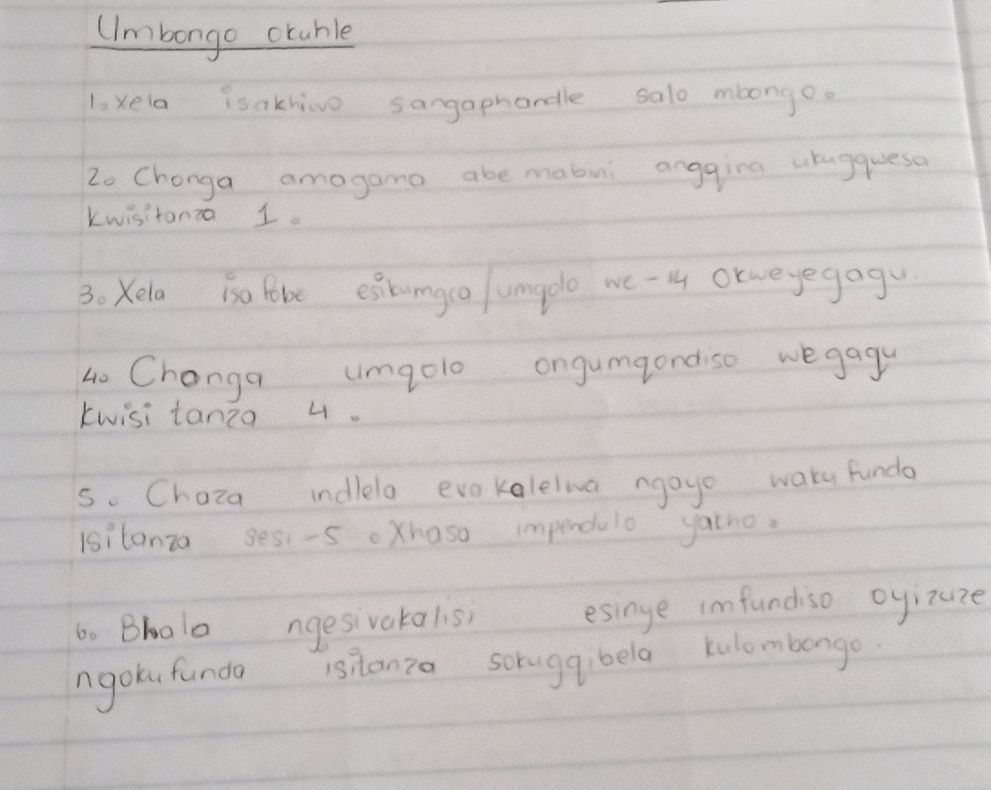 Umbongo okuhle
1. Xela isakhiwo sangaphandle salo mbongo.
2. Chonga amagama abe mabini angqina ukugqwesa
kwisitanza 1.
3. Xela isafobe esikumgca/umqolo we-14 Okweyegagu.
4. Chonga umqolo ongumqondiso wegagu
kwisi tanza 4.
5. Chaza indlela evakalelwa ngayo waku funda
isitanza sesi-5. Xhasa impendulo yakho.
6. Bhala ngesivakalisi esinye imfundiso oyizuze
ngokufunda isitanza sokugqibela kulombongo.